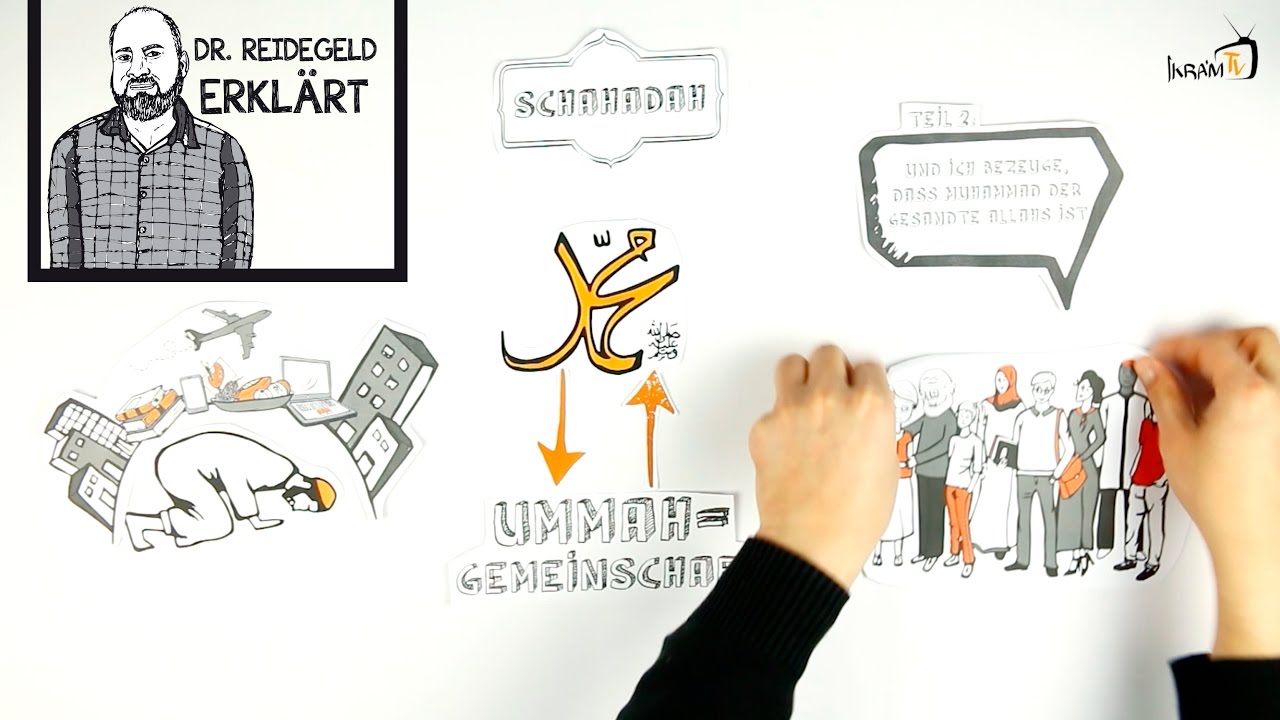 DR. REIDEGELD
ERKLÄRT
SCHAHADAH
İKRA'M TV
TEIL 2:
UND ICH BEZEUGE,
DASS MUHAMMAD DER
GESANDTE ALLAHS IST
محمد
صلى الله
عليه
وسلم
UMMAH=
GEMEINSCHAF